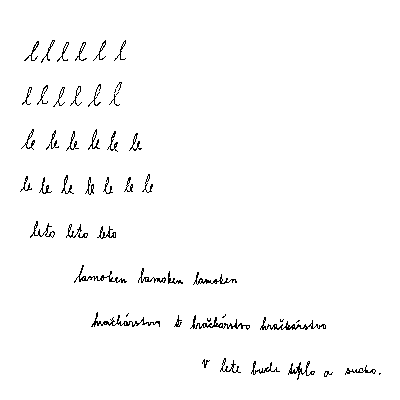 l l l l l l
l l l l l l
le le le le le le
le le le le le le le
leto leto leto
kamoken kamoken kamoken
hračkárstvo hračkárstvo hračkárstvo
V lete bude teplo a sucho.